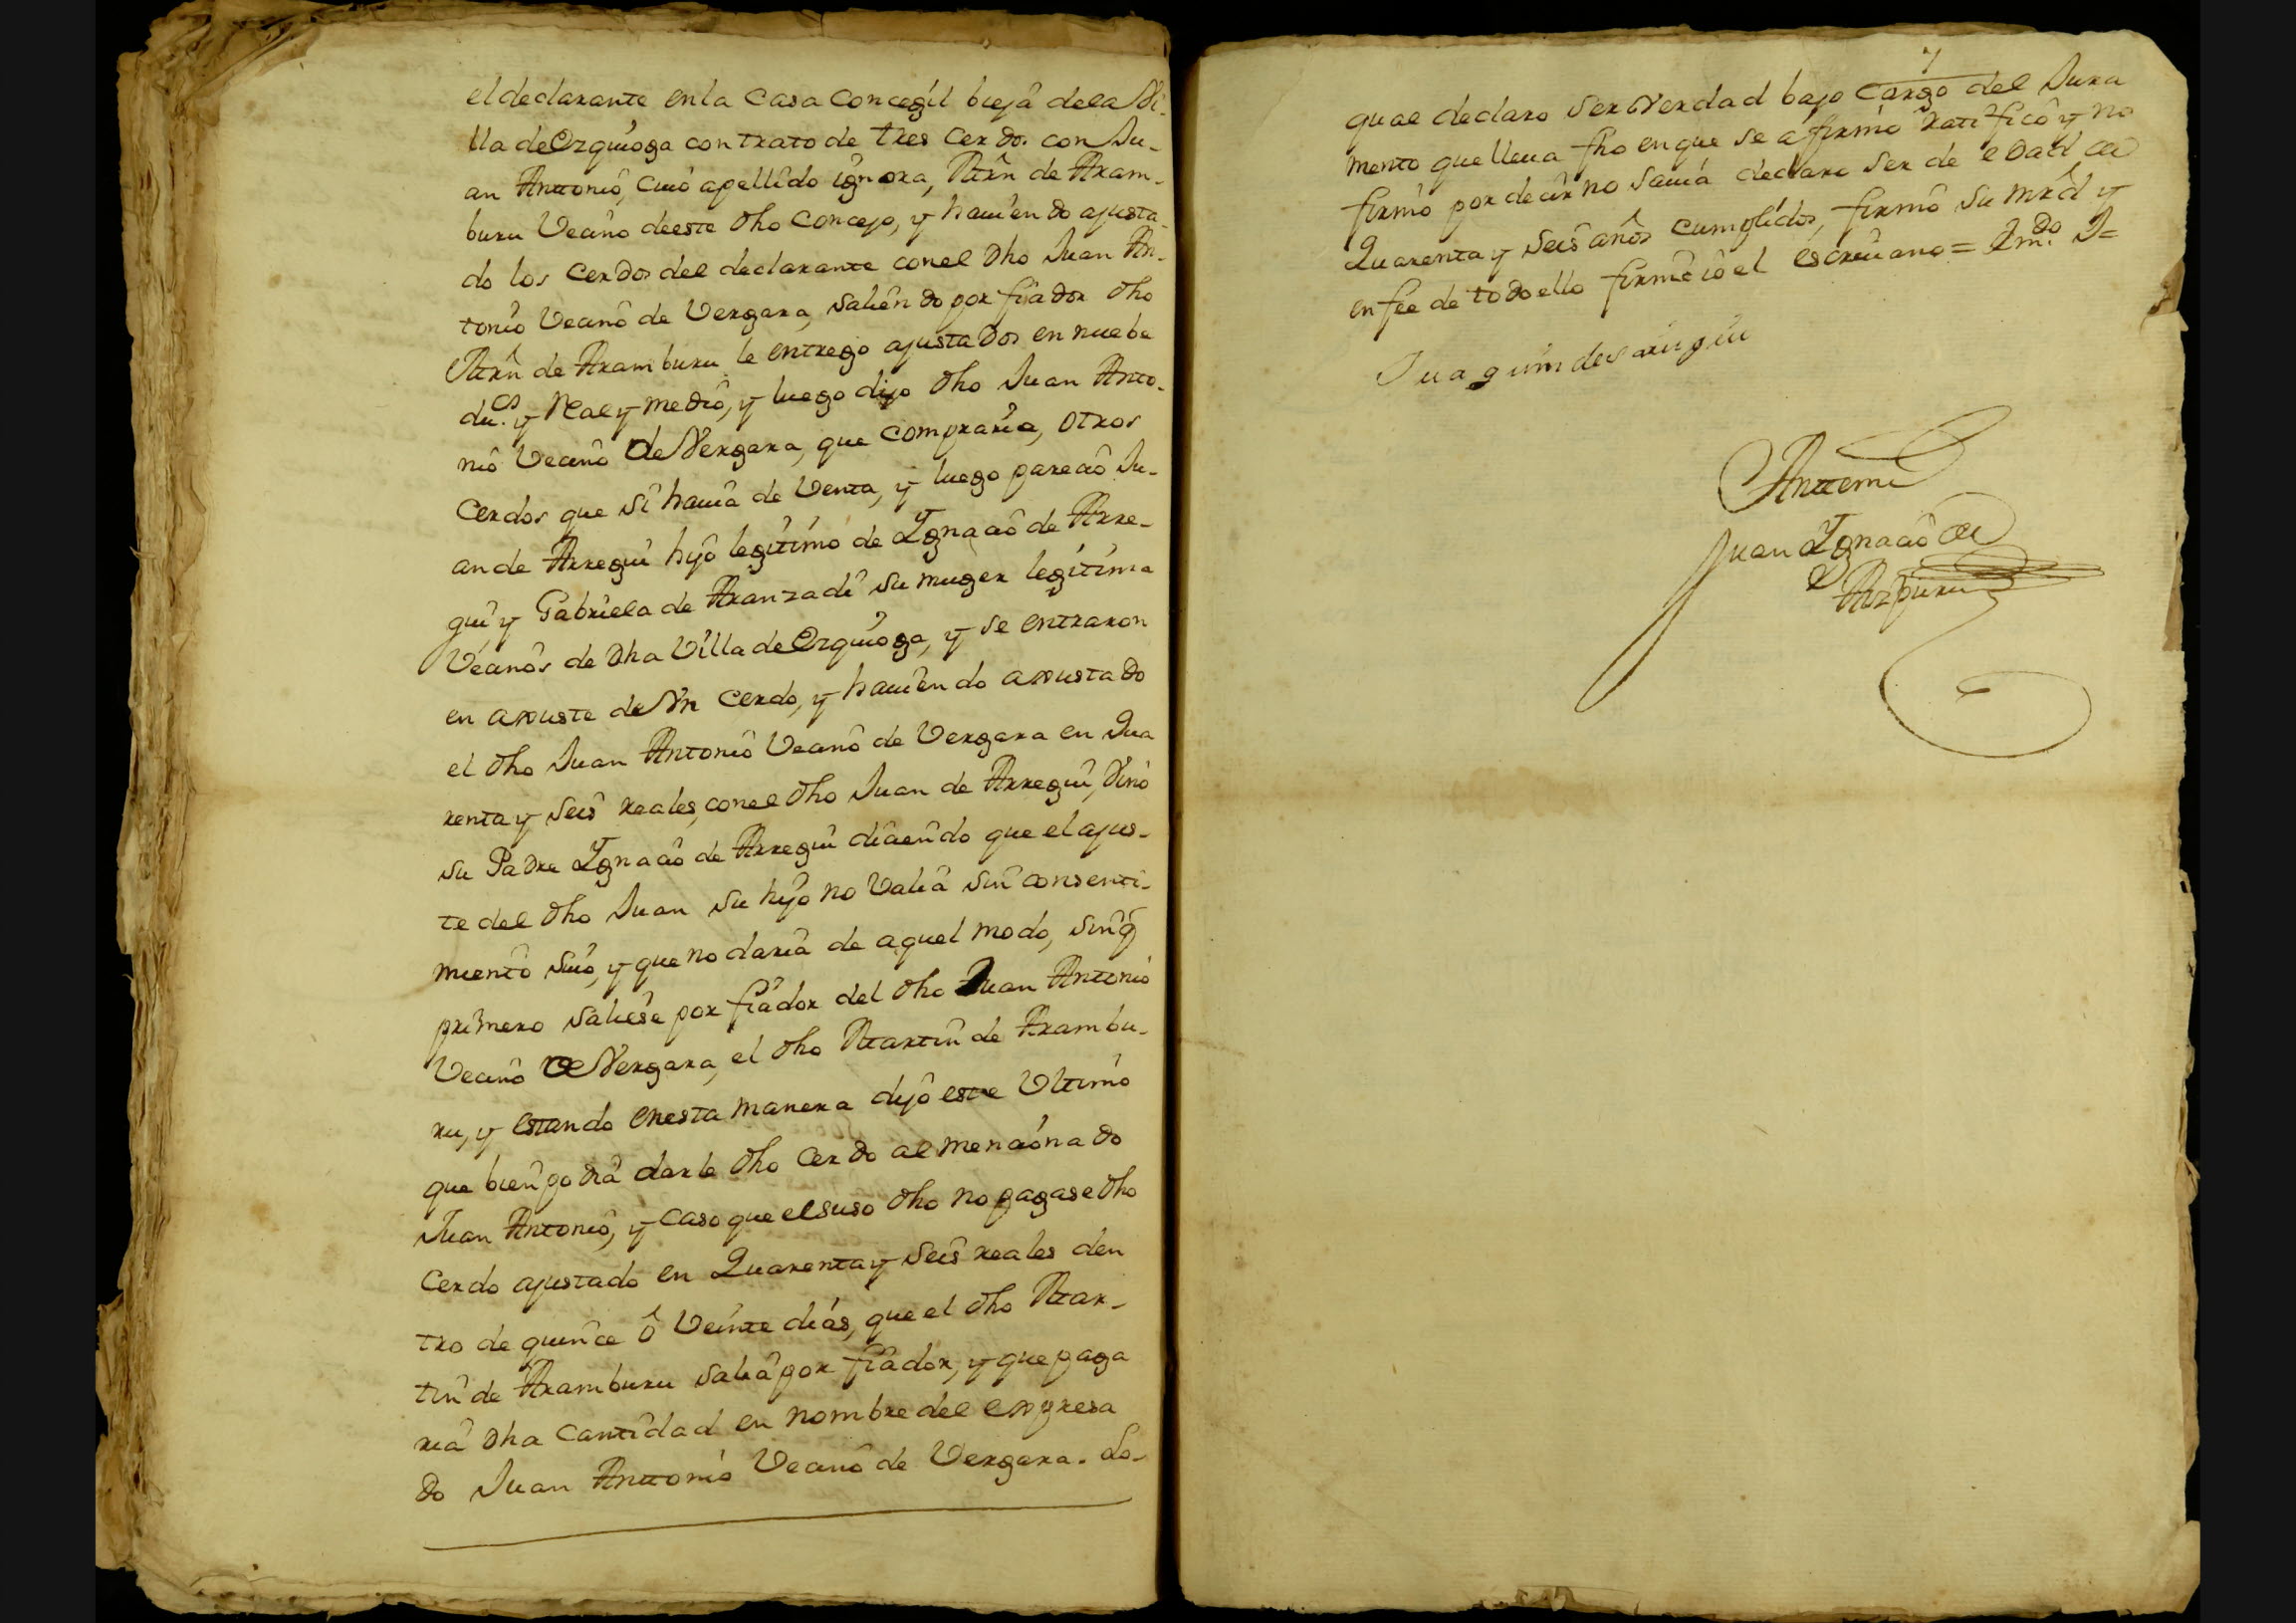 el declarante en la Casa Concegil bieja dela Vi-
lla de Ezquioga contrato de tres Cerdos con Ju-
an Anttonio, cuio apellido ignora, Mrn de Aram-
buru Vecino deeste dho Concejo, y hauiendo ajusta-
do los Cerdos del declarante conel dho Juan An-
tonio Vecino de Vergara, saliendo por fiador dho
Mrn de Aramburu le entrego ajustados en nuebe
du.cs y Real y medio, y luego dijo dho Juan Anto-
nio Vecino de Vergara, que compraria, otros
Cerdos que si hauia de Venta, y luego parecio Ju-
an de Arregui hijo legitimo de Ignacio de Arre-
gui, y Gabriela de Aranzadi su muger legitima
Vecinos de dha Villa de Ezquioga, y se entraron
en axuste de Vn Cerdo, y hauiendo axustado
el dho Juan Antonio Vecino de Vergara en Qua
renta y seis reales, conel dho Juan de Arregui, Vino
su Padre Ignacio de Arregui diciendo que el ajus-
te del dho Juan su hijo no Valia sin consenti-
miento suio, y que no daria de aquel modo, sin q̃
primero saliese por fiador del dho Juan Antonio
Vecino de Vergara, el dho Martin de Arambu-
ru, y estando enesta manera dijo este Ultimo
que bien podia darle dho Cerdo al mencionado
Juan Antonio, y caso que el suso dho no pagase dho
Cerdo ajustado en Quarenta y seis reales den
tro de quince ô Veinte dias, que el dho Mar-
tin de Aramburu salia por fiador, y que paga
ria dha Cantidad en nombre del expresa
do Juan Anttonio Vecino de Vergara. Lo-
qual declaro ser Verdad bajo Cargo del Jura
mento que lleua fho en que se afirmo ratifico y no
firmo por decir no sauia declaro ser de edad de
Quarenta y seis años cumplidos, firmo su mrd y
en fee de todo ello firme io el escriuano = Em.do J=
Juaquim desarugui
Anttemi
Juan Ignacio de
Aizpuru